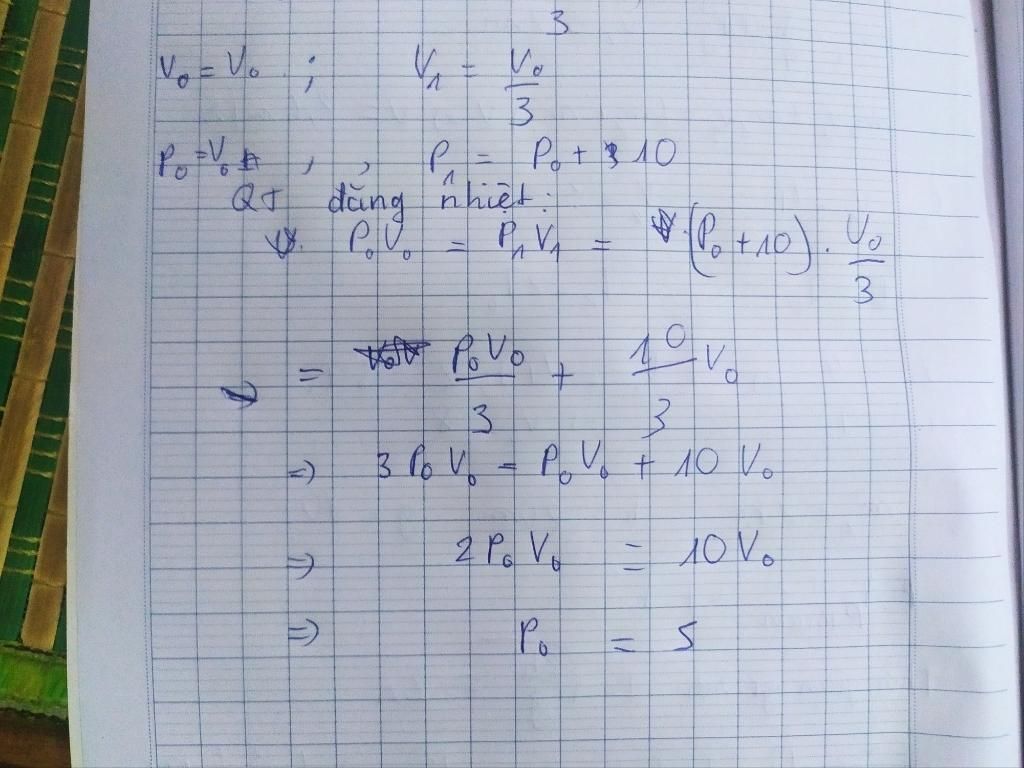 3
V₀ = V₀ ; V₁ = V₀/3
P₀ = V₀ , , P₁ = P₀ + 10
QT đăng nhiệt:
P₀V₀ = P₁V₁ = (P₀ + 10) . V₀/3
= P₀V₀/3 + 10/3 V₀
=) 3 P₀ V₀ = P₀ V₀ + 10 V₀
=) 2 P₀ V₀ = 10 V₀
=) P₀ = 5